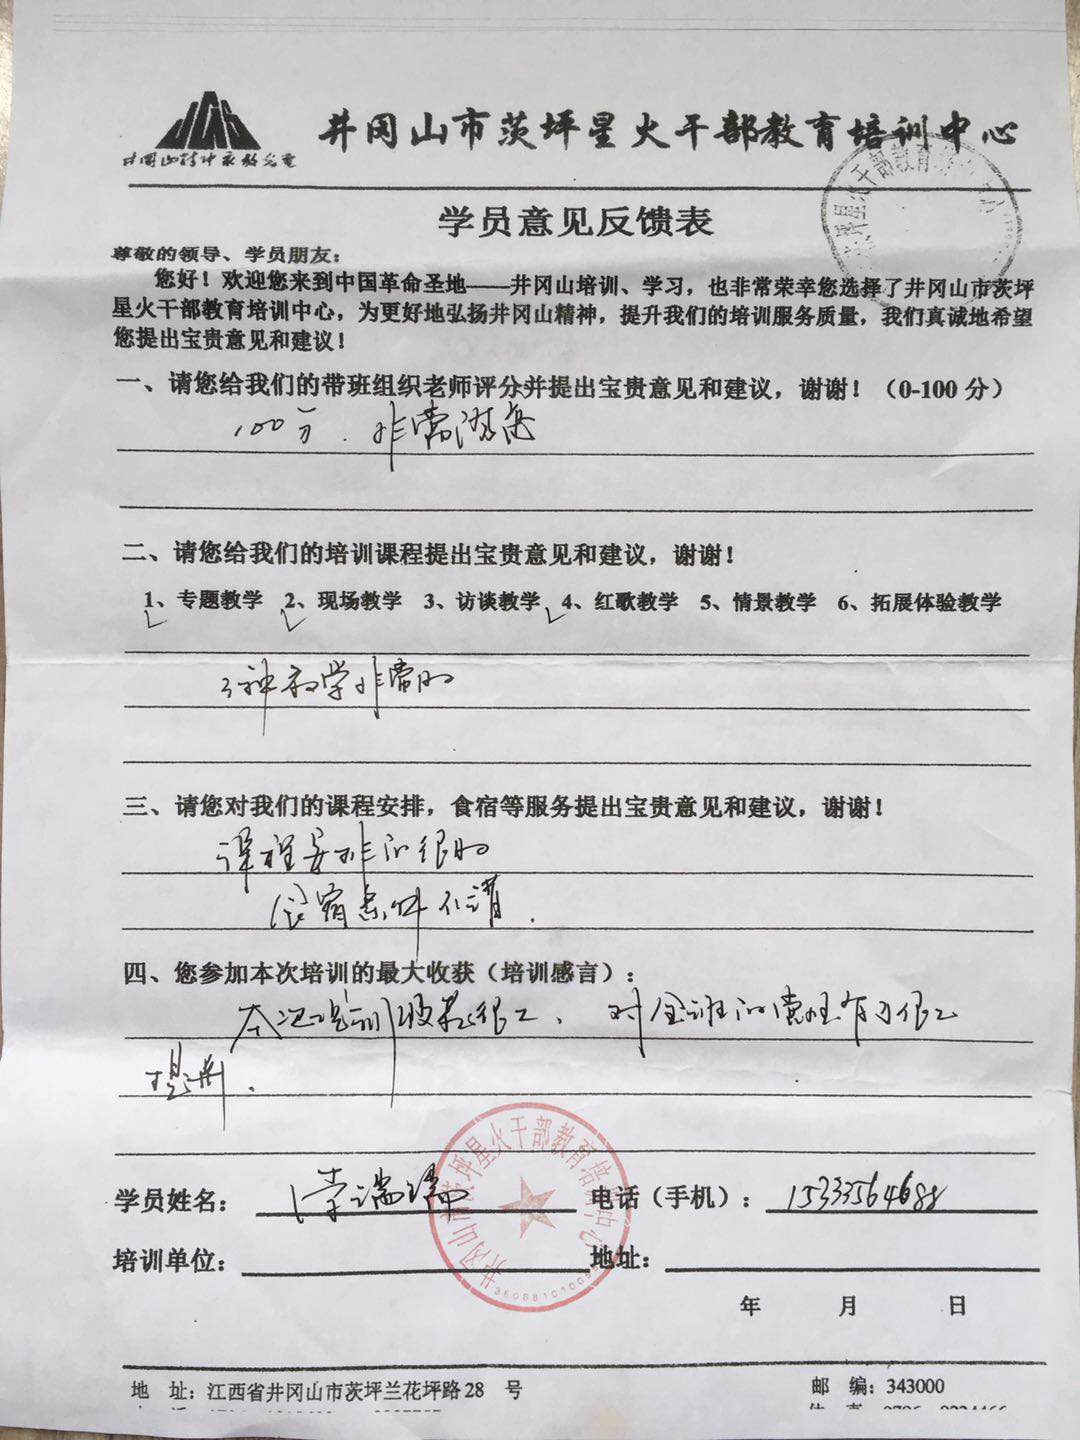 井冈山市茨坪星火干部教育培训中心
学员意见反馈表
尊敬的领导、学员朋友：
您好！欢迎您来到中国革命圣地——井冈山培训、学习，也非常荣幸您选择了井冈山市茨坪
星火干部教育培训中心，为更好地弘扬井冈山精神，提升我们的培训服务质量，我们真诚地希望
您提出宝贵意见和建议！
一、请您给我们的带班组织老师评分并提出宝贵意见和建议，谢谢！（0-100 分）
100分．非常满意
二、请您给我们的培训课程提出宝贵意见和建议，谢谢！
1、专题教学 2、现场教学 3、访谈教学 4、红歌教学 5、情景教学 6、拓展体验教学
3种教学非常好
三、请您对我们的课程安排，食宿等服务提出宝贵意见和建议，谢谢！
课程安排的很好
食宿条件不错．
四、您参加本次培训的最大收获（培训感言）：
本次培训收获很大、对全班的 有了很大
提升．
学员姓名： 李瑞 电话（手机）：15333564688
培训单位： 地址：
年 月 日
地 址：江西省井冈山市茨坪兰花坪路 28 号 邮 编：343000
井冈山市茨坪星火干部教育培训中心